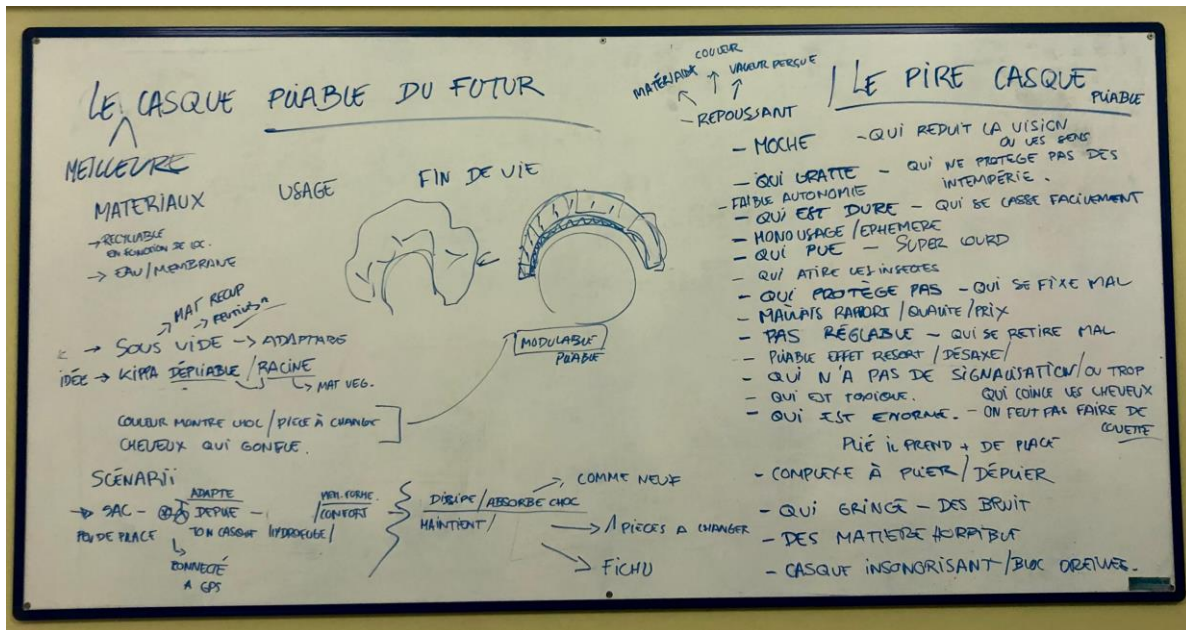 LE CASQUE PLIABLE DU FUTUR
MEILLEURE
MATERIAUX
USAGE
FIN DE VIE
→ RECYCLABLE
EN FONCTION DE
→ EAU/MEMBRANE
MAT RECUP
→ SOUS VIDE → ADAPTABLE
IDÉE → KIPPA DÉPLIABLE / RACINE
→ MAT VEG.
COULEUR MONTRE CHOC / PIECE À CHANGE
CHEVEUX QUI GONFLE.
MODULABLE
PLIABLE
SCÉNARII
→ SAC -
PEU DE PLACE
ADAPTE
DEPLIE -
TON CASQUE
MEM. FORME.
/CONFORT
HYDROFUGE/
CONNECTÉ
A GPS
DISSIPE/ABSORBE CHOC
MAINTIENT/
→ COMME NEUF
→ 1 PIÈCES A CHANGER
→ FICHU
/ LE PIRE CASQUE
PLIABLE
MATÉRIAUX
COULEUR
VALEUR PERÇUE
- REPOUSSANT
- MOCHE - QUI REDUIT LA VISION
OU LES SENS
- QUI GRATTE - QUI NE PROTEGE PAS DES
INTEMPÉRIE.
- FAIBLE AUTONOMIE
- QUI EST DURE - QUI SE CASSE FACILEMENT
- MONOUSAGE/EPHEMERE
- QUI PUE - SUPER LOURD
- QUI ATIRE LES INSECTES
- QUI PROTÈGE PAS - QUI SE FIXE MAL
- MAUVAIS RAPPORT/QUALITE/PRIX
- PAS RÉGLABLE - QUI SE RETIRE MAL
- PLIABLE EFFET RESORT / DÉSAXE/
- QUI N'A PAS DE SIGNALISATION/OU TROP
- QUI EST TOXIQUE. QUI COINCE LES CHEVEUX
- QUI EST ENORME. - ON PEUT PAS FAIRE DE
COUETTE
PLIÉ IL PREND + DE PLACE
- COMPLEXE À PLIER/DÉPLIER
- QUI GRINCE - DES BRUIT
- DES MATIERE HORRIBLE
- CASQUE INSONORISANT/BLOC OREILLES.